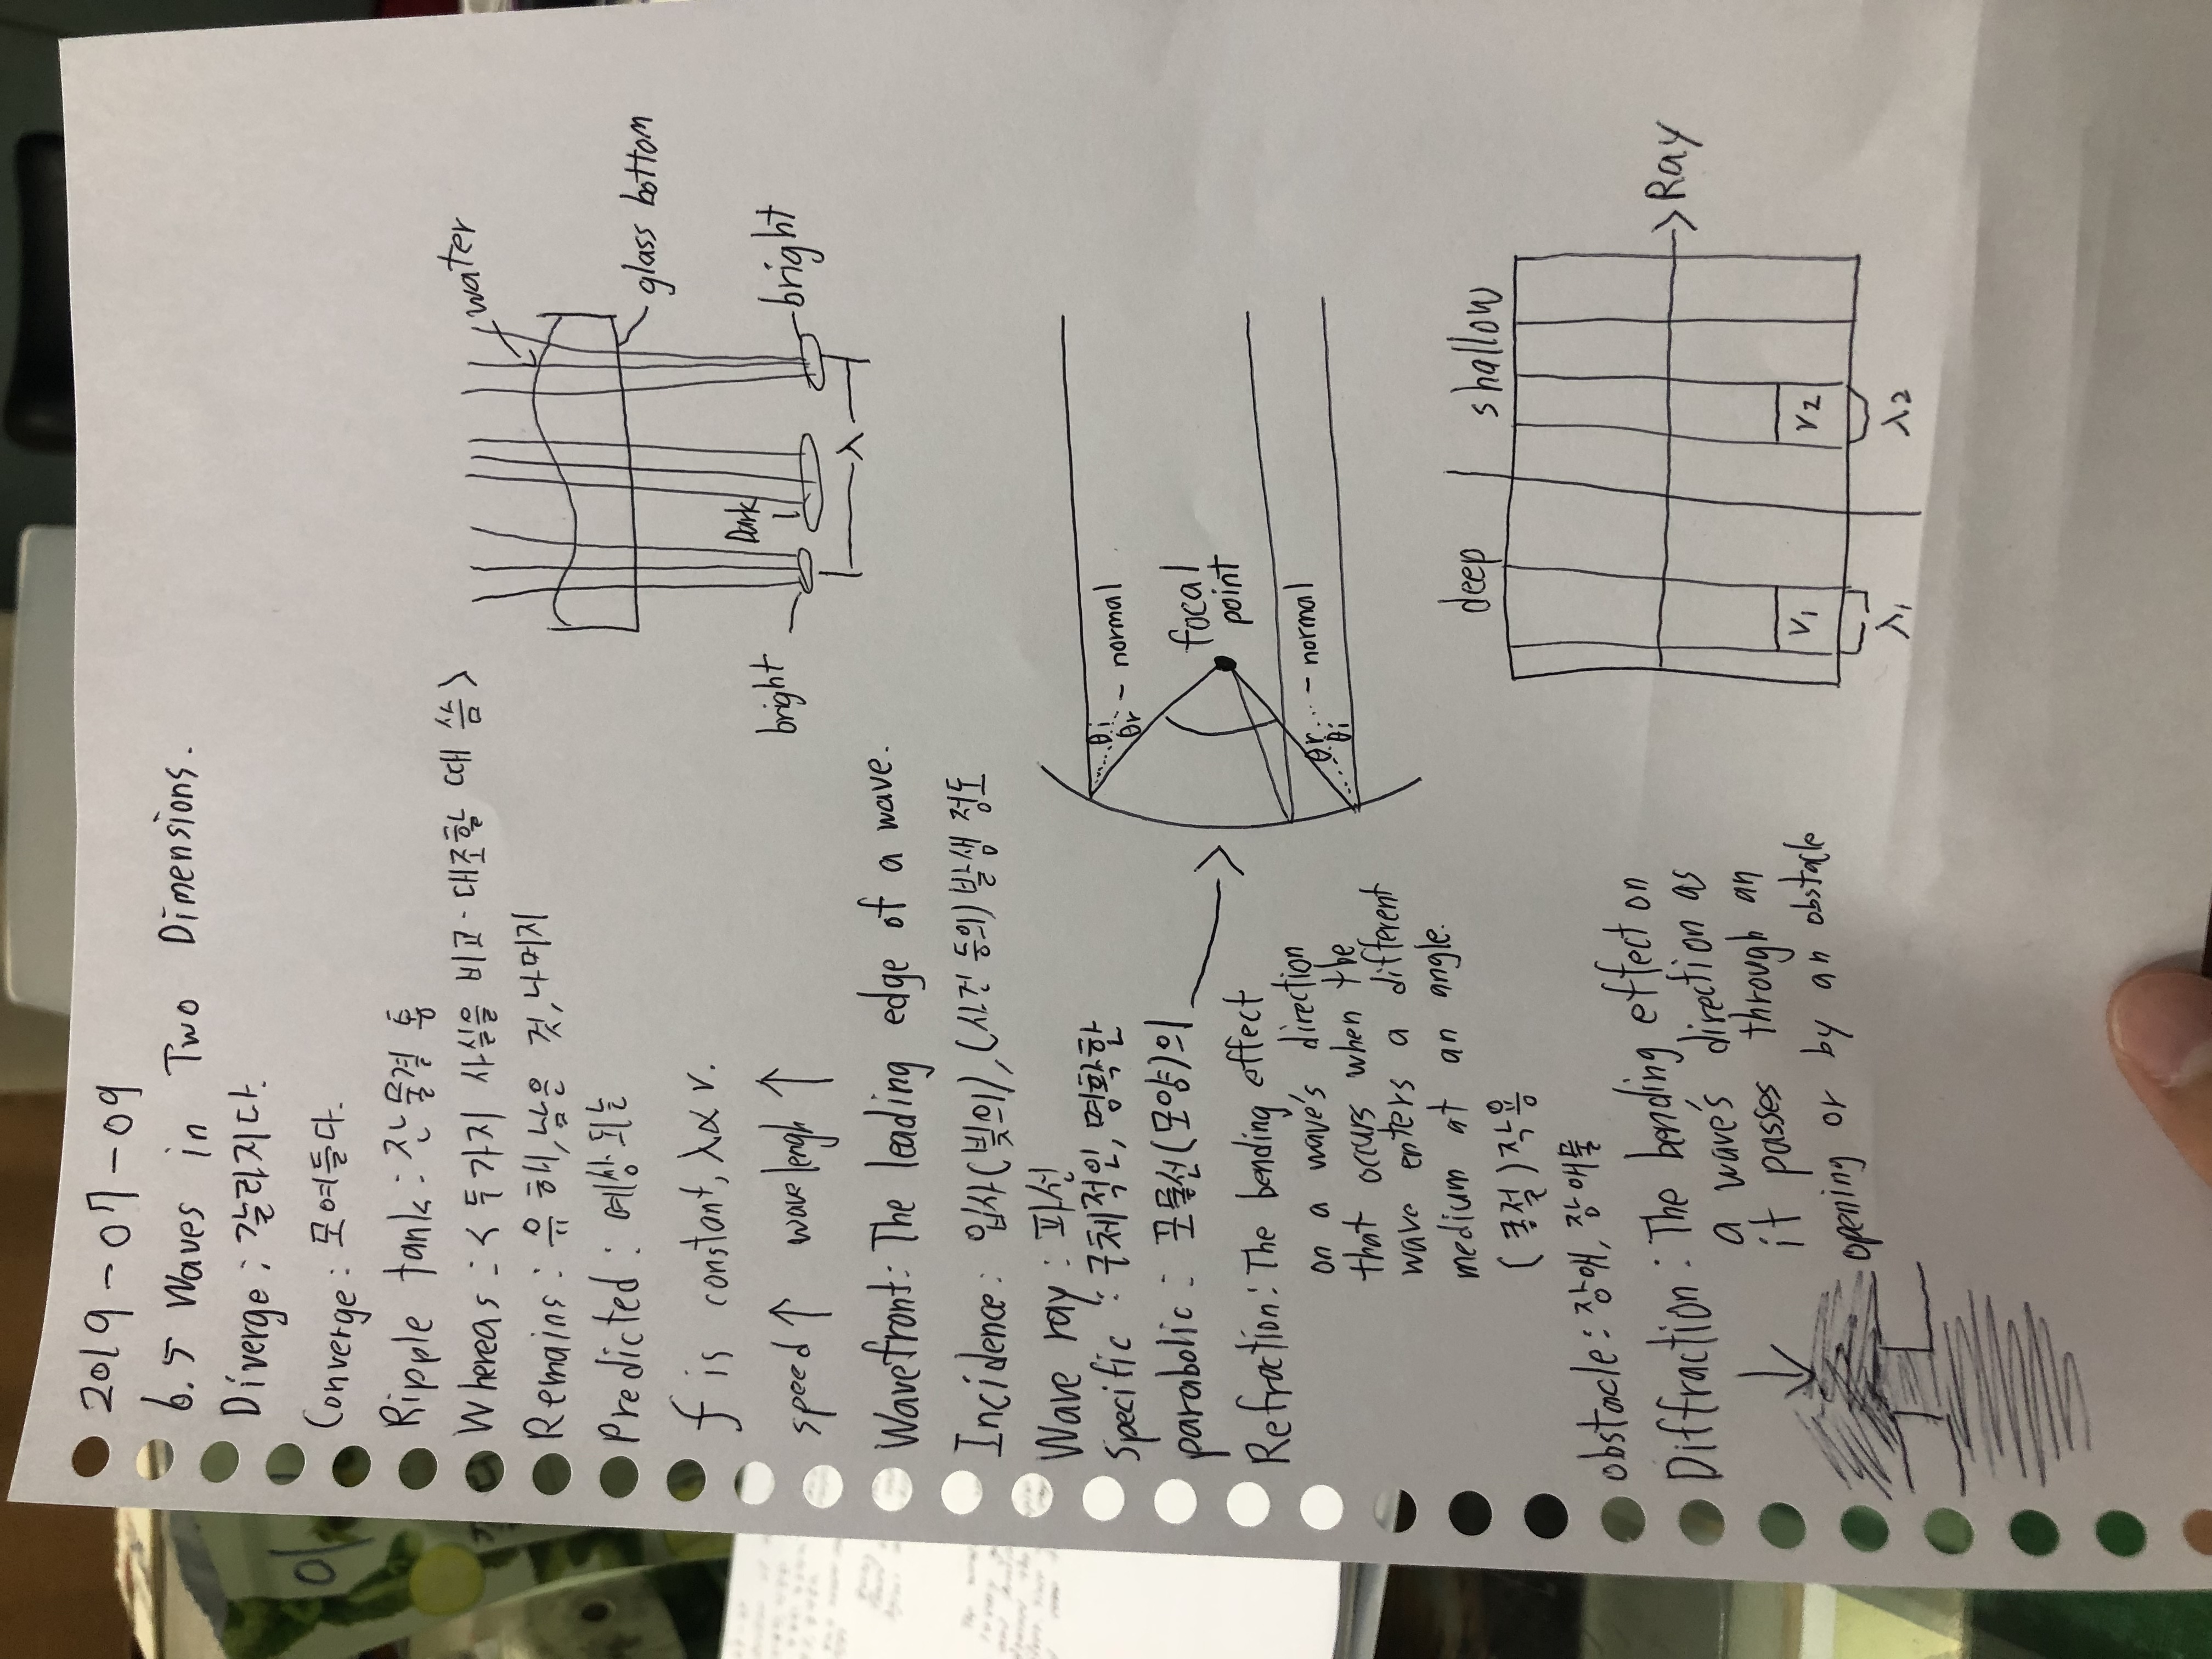 2019-07-09
6.5 Waves in Two Dimensions.
Diverge : 갈라지다.
Converge : 모여들다.
Ripple tank : 잔물결 통
Whereas : < 두가지 사실을 비교·대조할 때 씀 >
Remains : 유해, 남은 것, 나머지
Predicted : 예상되는
f is constant, λ∝v.
speed ↑ wave lengh ↑
Wavefront : The leading edge of a wave.
Incidence : 입사(빛의), (사건 등의) 발생 정도
Wave ray : 파선
Specific : 구체적인, 명확한
parabolic : 포물선(모양)의
Refraction : The bending effect
on a wave's direction
that occurs when the
wave enters a different
medium at an angle.
(굴절) 작용
obstacle : 장애, 장애물
Diffraction : The bending effect on
a wave's direction as
it passes through an
opening or by an obstacle
water
glass bottom
bright
Dark
bright
λ
θi
θr
normal
focal
point
θr
θi
normal
deep
shallow
Ray
V1
V2
λ1
λ2
이